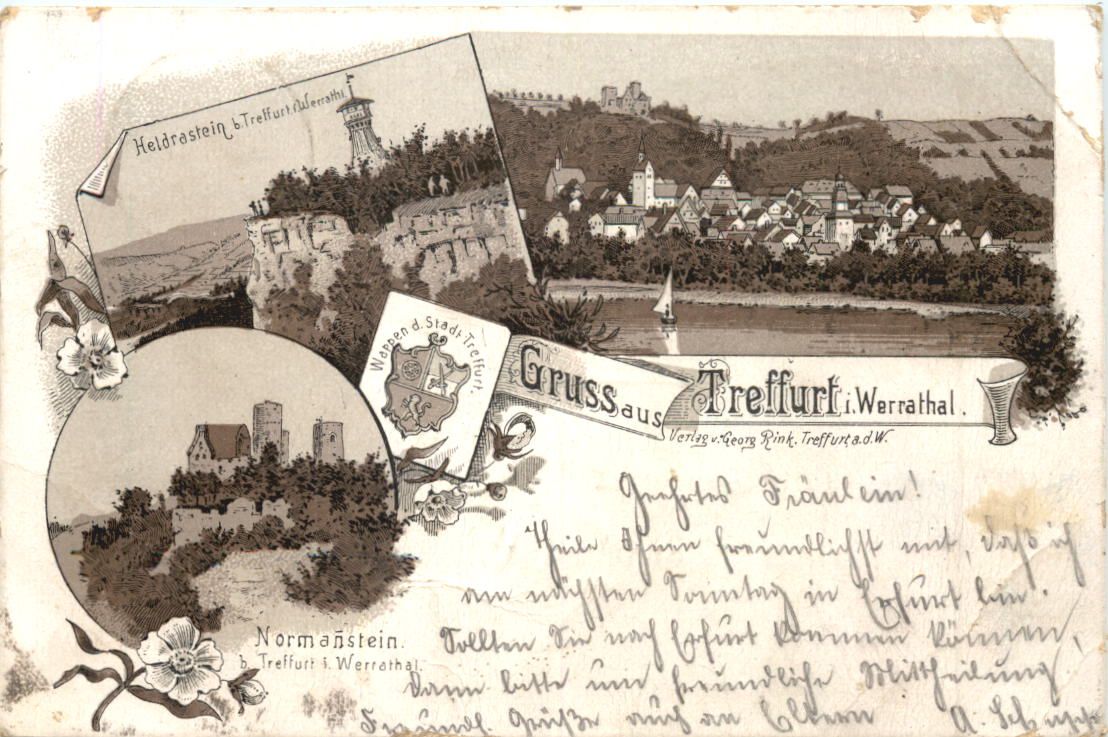 Heldrastein b. Treffurt i. Werrathl.
Wappen d. Stadt Treffurt.
Gruss aus Treffurt i. Werrathal.
Verlag v. Georg Rink. Treffurt a. d. W.
Normañstein.
b. Treffurt i. Werrathal.
Geehrtes Fräulein!
Theile Ihnen freundlichst mit, daß ich
am nächsten Sonntag in Erfurt bin.
Sollten Sie nach Erfurt kommen können,
dann bitte um freundliche Mittheilung
Freundl. Grüße auch an Eltern A.